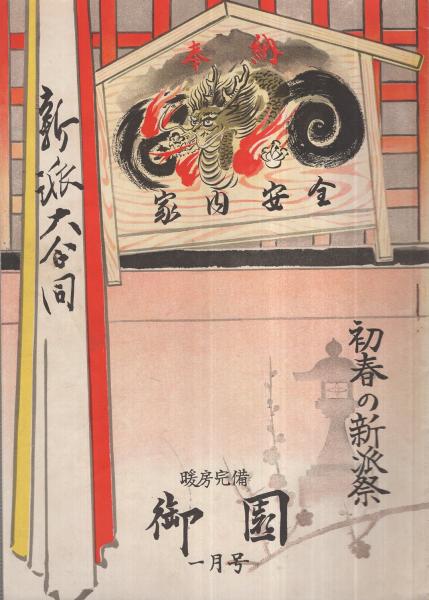 奉納
家内安全
新派大合同
初春の新派祭
暖房完備
御園
一月号